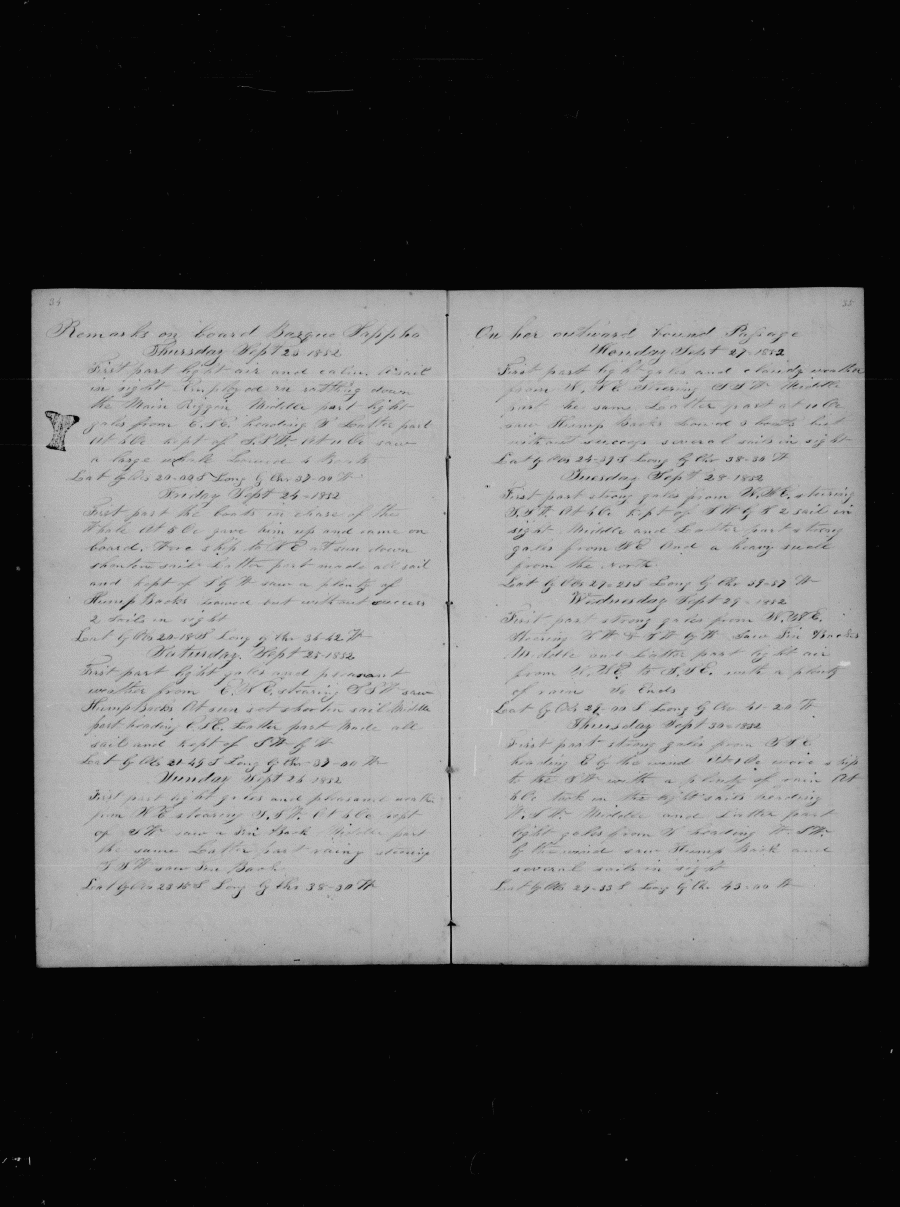 34
Remarks on board Barque Sappho
Thursday Sept 23 1852
First part light air and calm 1 sail
in sight Employed in rattling down
the Main Riggin Middle part light
gales from E.S.E. heading S Latter part
At 6 Oc kept of S.S.W. At 11 Oc saw
a large whale lowered 4 Boats
Lat by Obs 20-00 S Long by Chr 37-00 W
Friday Sept 24-1852
First part the boats in chase of the
Whale At 5 Oc gave him up and came on
board. ship to N E at sun down
shorten sail Latter part made all sail
and kept of S by W saw a plenty of
Hump Backs lowered but without success
2 sails in sight
Lat by Obs 20-18 S Long by Chr 36-42 W
Saturday. Sept 25-1852
First part light gales and pleasant
weather from E.N.E. stearing S S W saw
Hump Backs At sun set shorten sail Middle
part heading E S E. Latter part Made all
sail and kept of S W by W
Lat by Obs 21-49 S Long by Chr 37-00 W
Sunday Sept 26 1852
First part light gales and pleasant weath
from N E stearing S.S.W. At 6 Oc kept
of S W saw a Fin Back Middle part
the same Latter part steering
S S W saw Fin Back
Lat by Obs 23-18 S Long by Chr 38-30 W
35
On her outward bound Passage
Monday Sept 27-1852
First part light gales and cloudy weather
from N, N E Steering S S W Middle
part the same Latter part at 11 Oc
saw Hump Backs lowered 3 boats but
without success several sails in sight
Lat by Obs 24-39 S Long by Chr 38-30 W
Tuesday Sept 28-1852
First part strong gales from N.N.E. steering
S.S.W. At 6 Oc kept of S W by S 2 sail in
sight Middle and Latter part strong
gales from N E And a heavy swell
from the North.
Lat by Obs 27-21 S Long by Chr 39-57 W
Wednesday Sept 29-1852
First part strong gales from N.N.E.
Steering S W & S W by W Saw Fin Backs
Middle and Latter part light air
from N.NE to S.S.E. with a plenty
of rain So Ends
Lat by Obs 29-00 S Long by Chr 41-20 W
Thursday Sept 30-1852
First part strong gales from S S E
heading E by the wind At 1 Oc wore ship
to the S W with a plenty of rain At
6 Oc took in the light sails heading
W.S W Middle and Latter part
light gales from S heading W.S W.
by the wind saw Hump Back and
several sails in sight
Lat by Obs 29-33 S Long by Chr 43-00 W